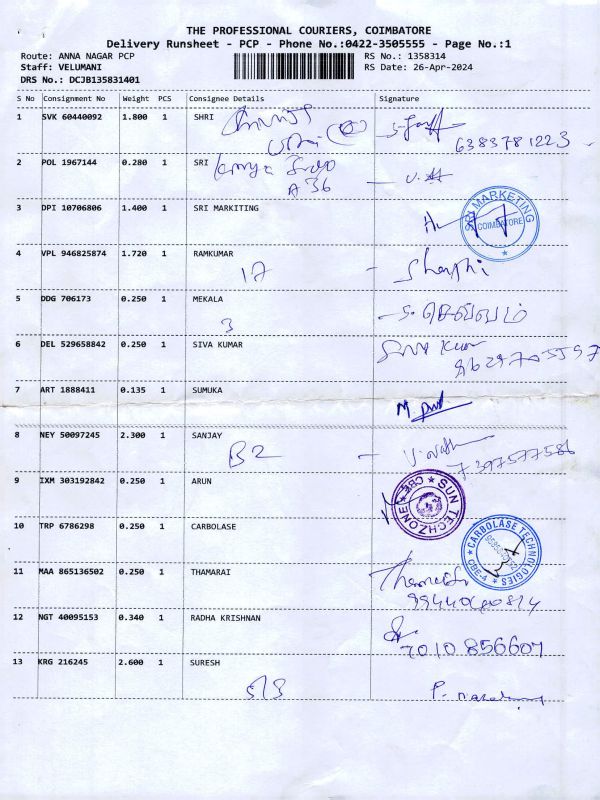 THE PROFESSIONAL COURIERS, COIMBATORE
Delivery Runsheet - PCP - Phone No.:0422-3505555 - Page No.:1
Route: ANNA NAGAR PCP RS No.: 1358314
Staff: VELUMANI RS Date: 26-Apr-2024
DRS No.: DCJB135831401
S No Consignment No Weight PCS Consignee Details Signature
1 SVK 60440092 1.800 1 SHRI
6383781223
2 POL 1967144 0.280 1 SRI
A 36
3 DPI 10706806 1.400 1 SRI MARKITING
SRI MARKETING COIMBATORE
4 VPL 946825874 1.720 1 RAMKUMAR
17
5 DDG 706173 0.250 1 MEKALA
3
6 DEL 529658842 0.250 1 SIVA KUMAR
Siva Kumar
7 ART 1888411 0.135 1 SUMUKA
8 NEY 50097245 2.300 1 SANJAY
B2
7397577586
9 IXM 303192842 0.250 1 ARUN
SUN TECHZONE CBE
10 TRP 6786298 0.250 1 CARBOLASE
CARBOLASE TECHNOLOGIES CBE-4
11 MAA 865136502 0.250 1 THAMARAI
12 NGT 40095153 0.340 1 RADHA KRISHNAN
7010 856607
13 KRG 216245 2.600 1 SURESH